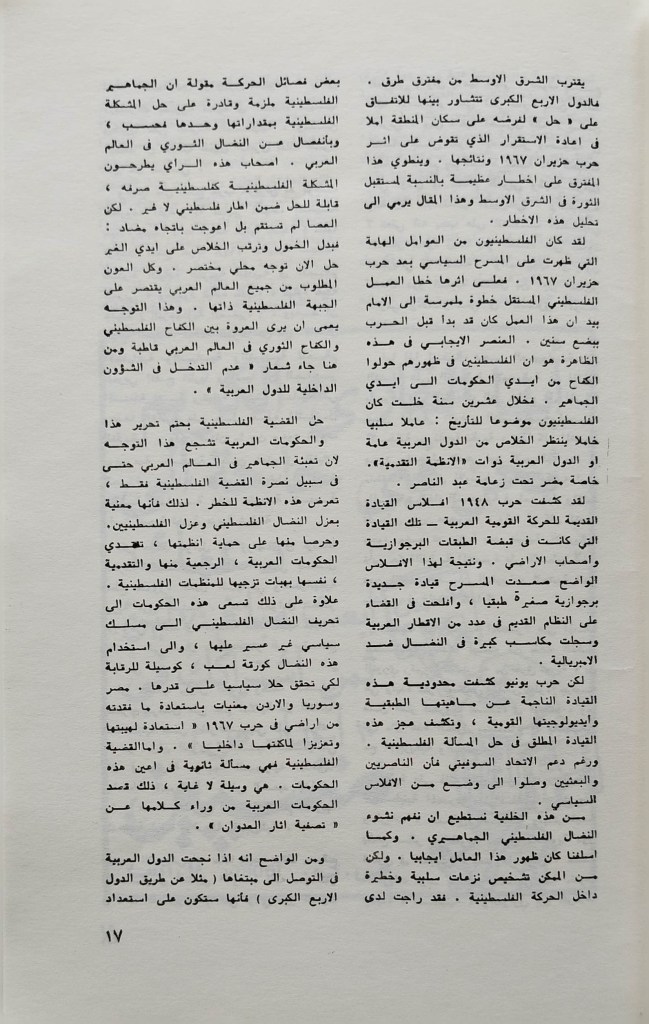 يقترب الشرق الاوسط من مفترق طرق .
فالدول الاربع الكبرى تتشاور بينها للاتفاق
على « حل » لفرضه على سكان المنطقة املا
في اعادة الاستقرار الذي تقوض على اثر
حرب حزيران ١٩٦٧ ونتائجها . وينطوي هذا
المفترق على اخطار عظيمة بالنسبة لمستقبل
الثورة في الشرق الاوسط وهذا المقال يرمي الى
تحليل هذه الاخطار .
لقد كان الفلسطينيون من العوامل الهامة
التي ظهرت على المسرح السياسي بعد حرب
حزيران ١٩٦٧ . فعلى اثرها خطا العمل
الفلسطيني المستقل خطوة ملمرسة الى الامام
بيد ان هذا العمل كان قد بدأ قبل الحرب
ببضع سنين . العنصر الايجابي في هذه
الظاهرة هو ان الفلسطينين في ظهورهم حولوا
الكفاح من ايدي الحكومات الى ايدي
الجماهير . فخلال عشرين سنة خلت كان
الفلسطينيون موضوعا للتأريخ : عاملا سلبيا
خاملا ينتظر الخلاص من الدول العربية عامة
او الدول العربية ذوات «الانظمة التقدمية».
خاصة مضر تحت زعامة عبد الناصر .
لقد كشفت حرب ١٩٤٨ افلاس القيادة
القديمة للحركة القومية العربية ــ تلك القيادة
التي كانت في قبضة الطبقات البرجوازية
واصحاب الاراضي . ونتيجة لهذا الافلاس
الواضح صعدت المسرح قيادة جديدة
برجوازية صغيرة طبقيا ، وافلحت في القضاء
على النظام القديم في عدد من الاقطار العربية
وسجلت مكاسب كبيرة في النضال ضد
الامبريالية .
لكن حرب يونيو كشفت محدودية هذه
القيادة الناجمة عن ماهيتها الطبقية
وايديولوجيتها القومية ، وتكشف عجز هذه
القيادة المطلق في حل المسألة الفلسطينية .
ورغم دعم الاتحاد السوفيتي فأن الناصريين
والبعثيين وصلوا الى وضع من الافلاس
السياسي .
من هذه الخلفية نستطيع ان نفهم نشوء
النضال الفلسطيني الجماهيري . وكما
اسلفنا كان ظهور هذا العامل ايجابيا . ولكن
من الممكن تشخيص نزعات سلبية وخطيرة
داخل الحركة الفلسطينية . فقد راجت لدى
بعض فصائل الحركة مقولة ان الجماهير
الفلسطينية ملزمة وقادرة على حل المشكلة
الفلسطينية بمقداراتها وحدها فحسب ،
وبأنفصال عن النضال الثوري في العالم
العربي . اصحاب هذه الرأي يطرحون
المشكلة الفلسطينية كفلسطينية صرفه ،
قابلة للحل ضمن اطار فلسطيني لا غير . لكن
العصا لم تستقم بل اعوجت باتجاه مضاد :
فبدل الخمول وترتب الخلاص على ايدي الغير
حل الان توجه محلي مختصر . وكل العون
المطلوب من جميع العالم العربي يقتصر على
الجبهة الفلسطينية ذاتها . وهذا التوجه
يعمى ان يرى العروة بين الكفاح الفلسطيني
والكفاح الثوري في العالم العربي قاطبة ومن
هنا جاء شعار « عدم التدخل في الشؤون
الداخلية للدول العربية » .
حل القضية الفلسطينية بحتم تحرير هذا
والحكومات العربية تشجع هذا التوجه
لان تعبئة الجماهير في العالم العربي حتى
في سبيل نصرة القضية الفلسطينية فقط ،
تعرض هذه الانظمة للخطر . لذلك فأنها معنية
بعزل النضال الفلسطيني وعزل الفلسطينيين.
وحرصا منها على حماية انظمتها ، تفتدي
الحكومات العربية ، الرجعية منها والتقدمية
، نفسها بهبات تزجيها للمنظمات الفلسطينية .
علاوة على ذلك تسعى هذه الحكومات الى
تحريف النضال الفلسطيني الى مسلك
سياسي غير عسير عليها ، والى استخدام
هذه النضال كورقة لعب ، كوسيلة للرقابة
لكي تحقق حلا سياسيا على قدرها . مصر
وسوريا والاردن معنيات باستعادة ما فقدته
من اراضي في حرب ١٩٦٧ « استعادة لهيبتها
وتعزيزا لمكانتها داخليا » . واما القضية
الفلسطينية فهي مسألة ثانوية في اعين هذه
الحكومات . هي وسيلة لا غاية ، ذلك قصد
الحكومات العربية من وراء كلامها عن
« تصفية اثار العدوان » .
ومن الواضح انه اذا نجحت الدول العربية
في التوصل الى مبتغاها ( مثلا عن طريق الدول
الاربع الكبرى ) فأنها ستكون على استعداد
١٧